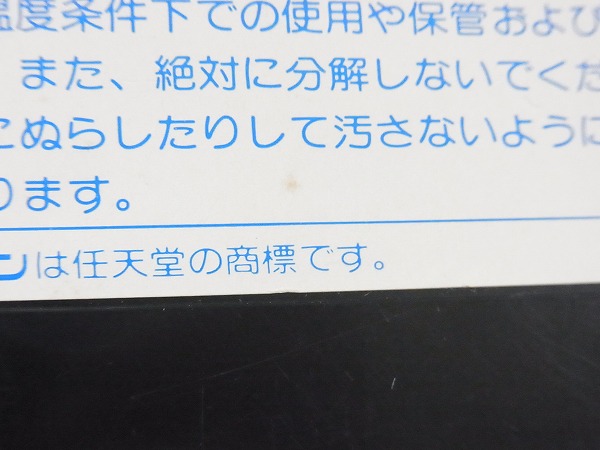 温度条件下での使用や保管および
また、絶対に分解しないでくだ
ぬらしたりして汚さないように
ります。
ンは任天堂の商標です。